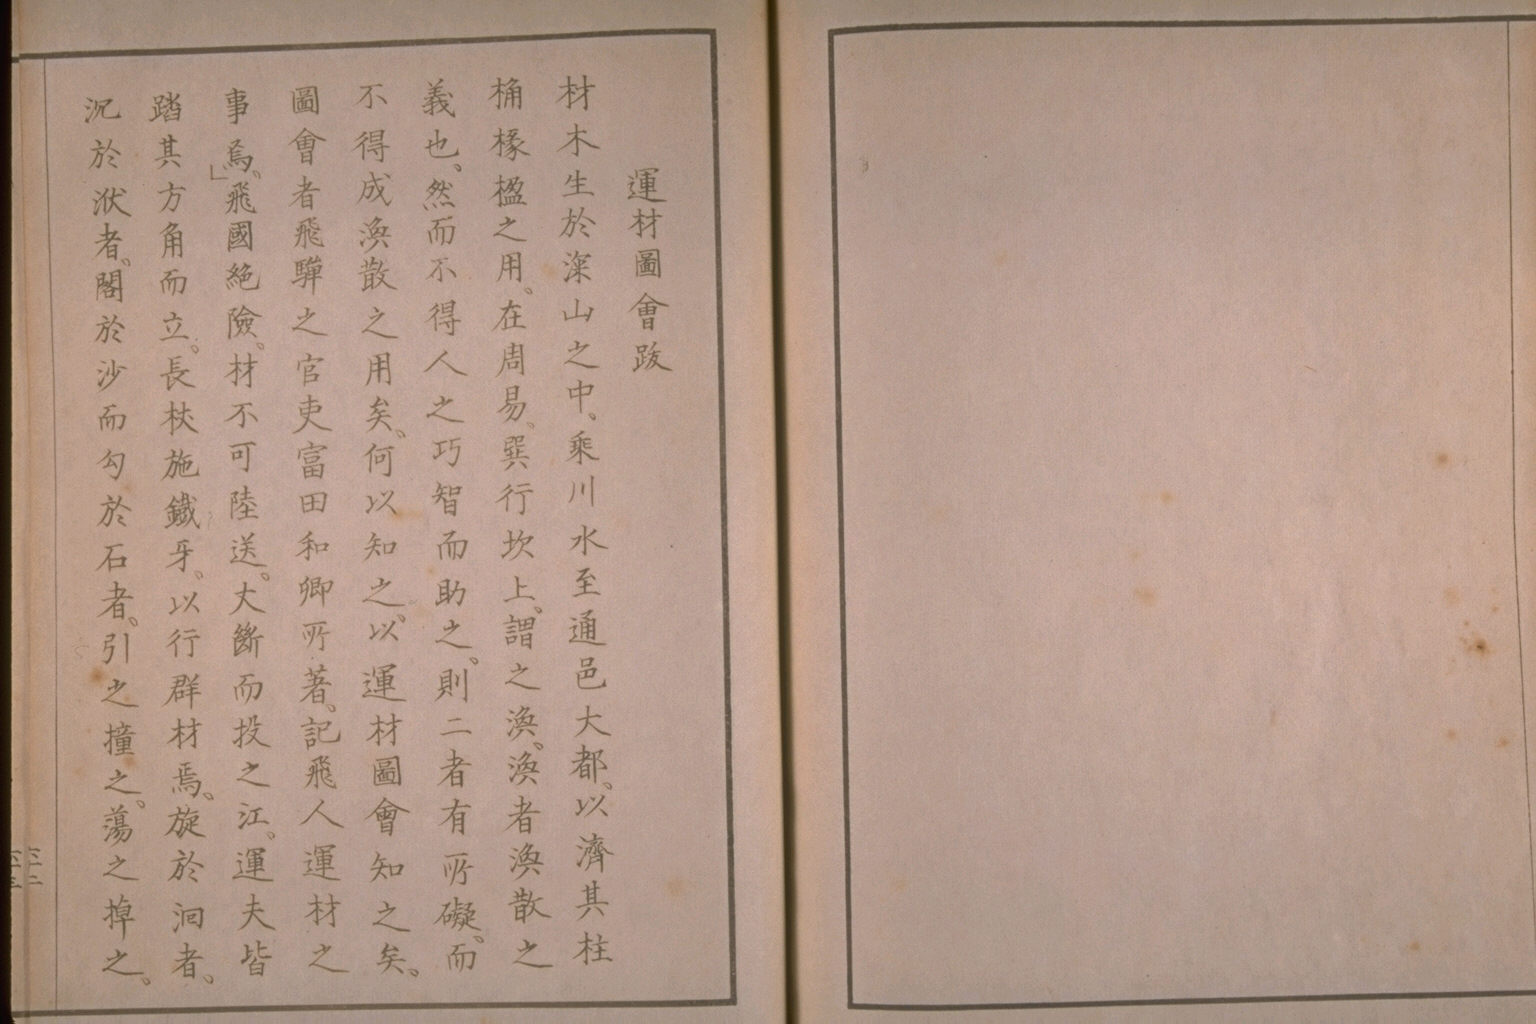 運材圖會跋
材木生於深山之中。乘川水至通邑大都。以濟其柱
桷椽楹之用。在周易。巽行坎上。謂之渙。渙者渙散之
義也。然而不得人之巧智而助之。則二者有所礙。而
不得成渙散之用矣。何以知之。以運材圖會知之矣。
圖會者飛驒之官吏富田和卿所著。記飛人運材之
事焉。飛國絶險。材不可陸送。大斷而投之江。運夫皆
踏其方角而立。長杖施鐵牙。以行群材焉。旋於洄者。
沉於洑者。閣於沙而勾於石者。引之撞之。蕩之掉之。